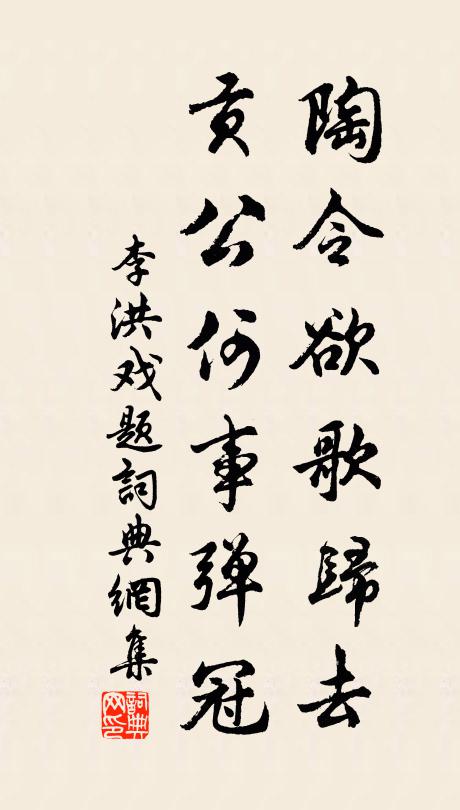 陶令欲歌歸去
貢公何事弾冠
李洪戏题詞典網集
詞典网印